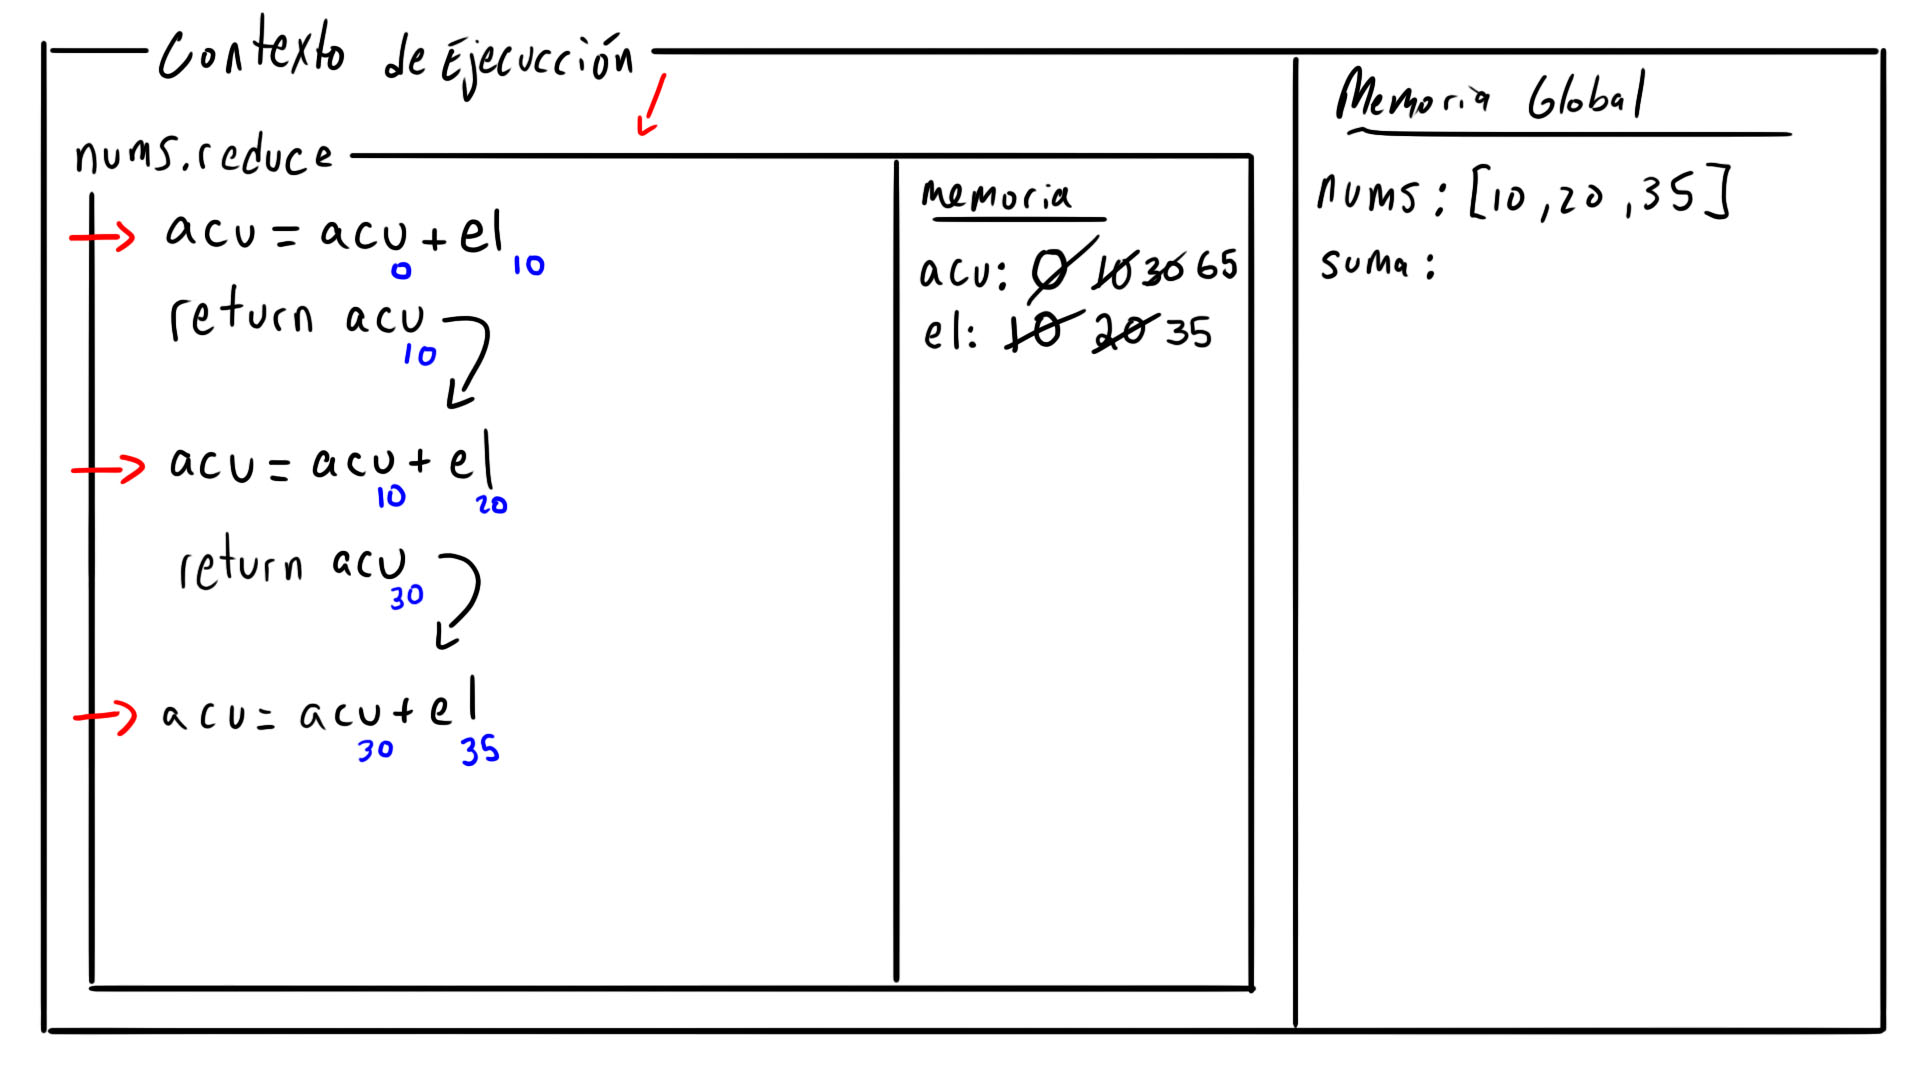 Contexto de Ejecucción
nums.reduce
acu = acu + el
0 10
return acu
10
acu = acu + el
10 20
return acu
30
acu = acu + el
30 35
memoria
acu: 0 10 30 65
el: 10 20 35
Memoria Global
nums: [10, 20, 35]
suma: